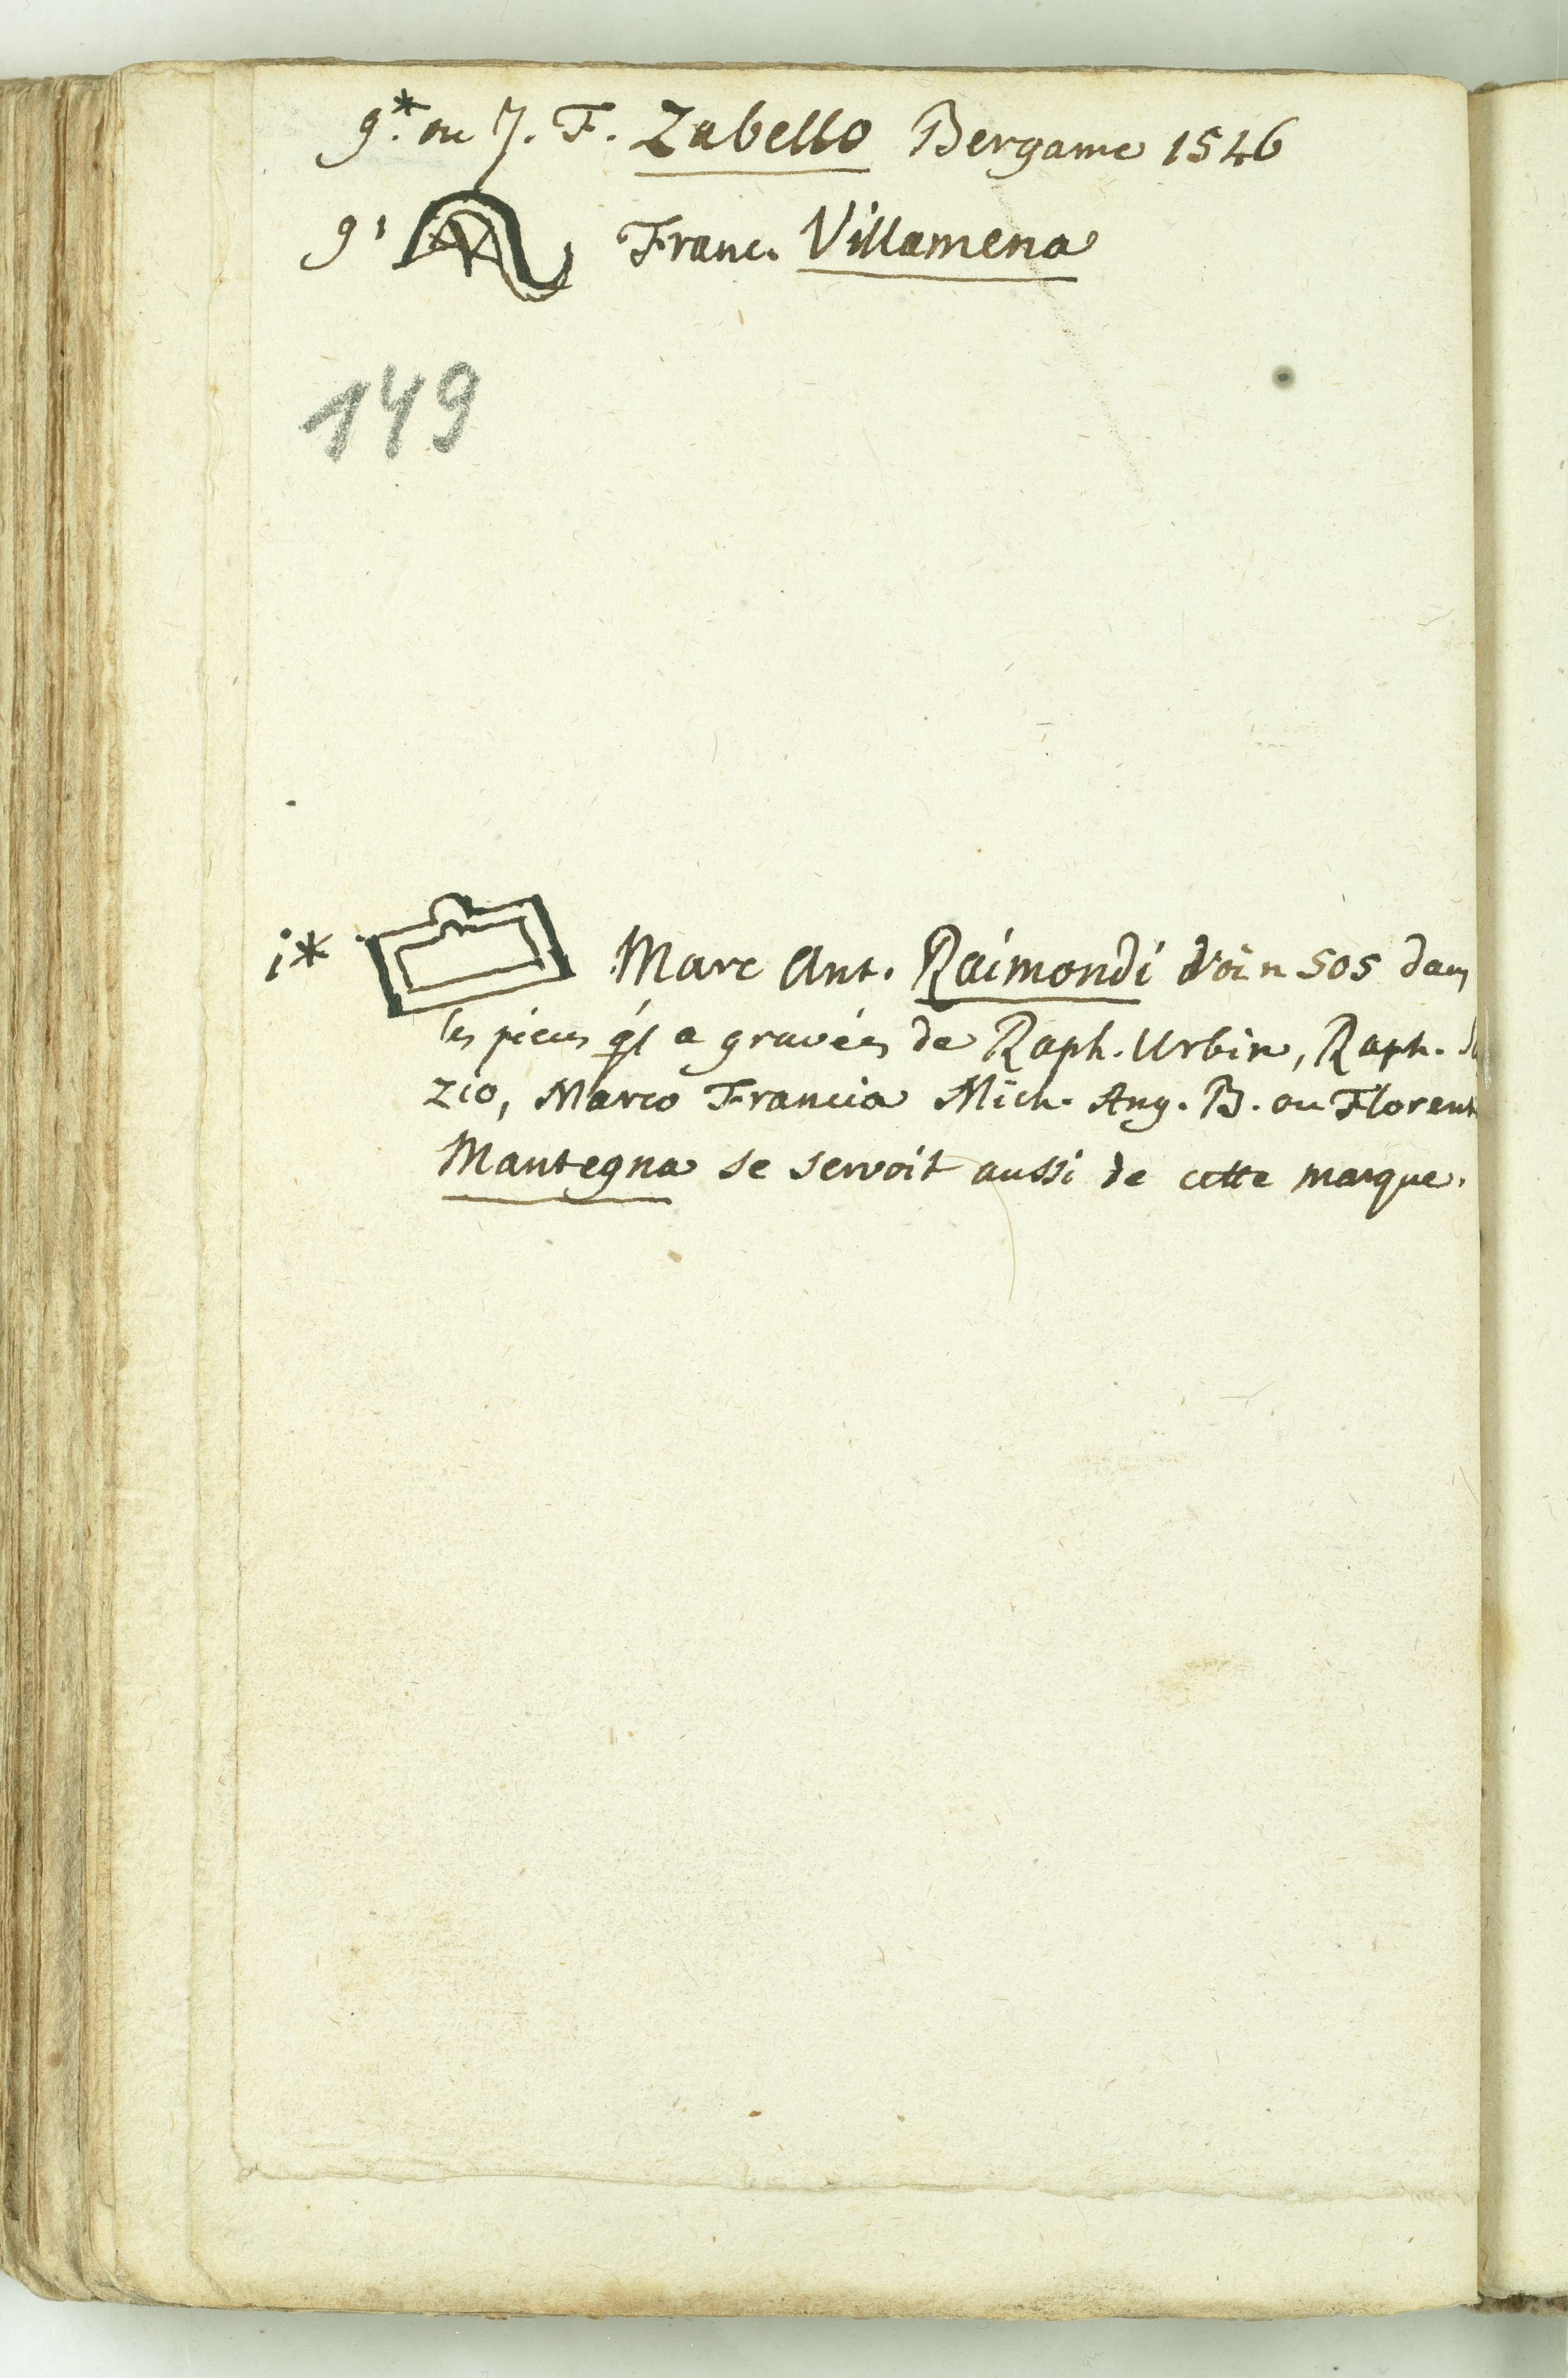 9.* ou J. F. Zabello Bergame 1546
91 Franc. Villamena
149
i* Marc Ant. Raimondi dans
les pieces ql a gravées de Raph. Urbin, Raph.
zio, Marco Francia Mich. Ang. B. ou Florent
Mantegna se servoit aussi de cette marque.